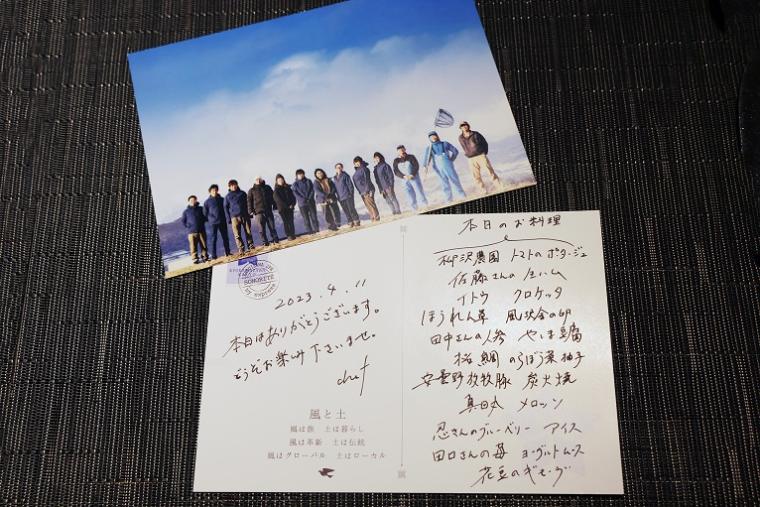 2023.4.11
本日はありがとうございます。
どうぞお楽み下さいませ。
chef
風と土
風は旅 土は暮らし
風は革新 土は伝統
風はグローバル 土はローカル
本日のお料理
柳沢農園 トマトのポタージュ
佐藤さんの生ハム
イトウ クロケッタ
ほうれん草 風次舎の卵
田中さんの人参 やま豆腐
桜鯛 のらぼう菜 柚子
安曇野放牧豚 炭火焼
真日本 メロッソ
忍さんのブルーベリー アイス
田口さんの苺 ヨーグルトムース
花豆のギモーヴ